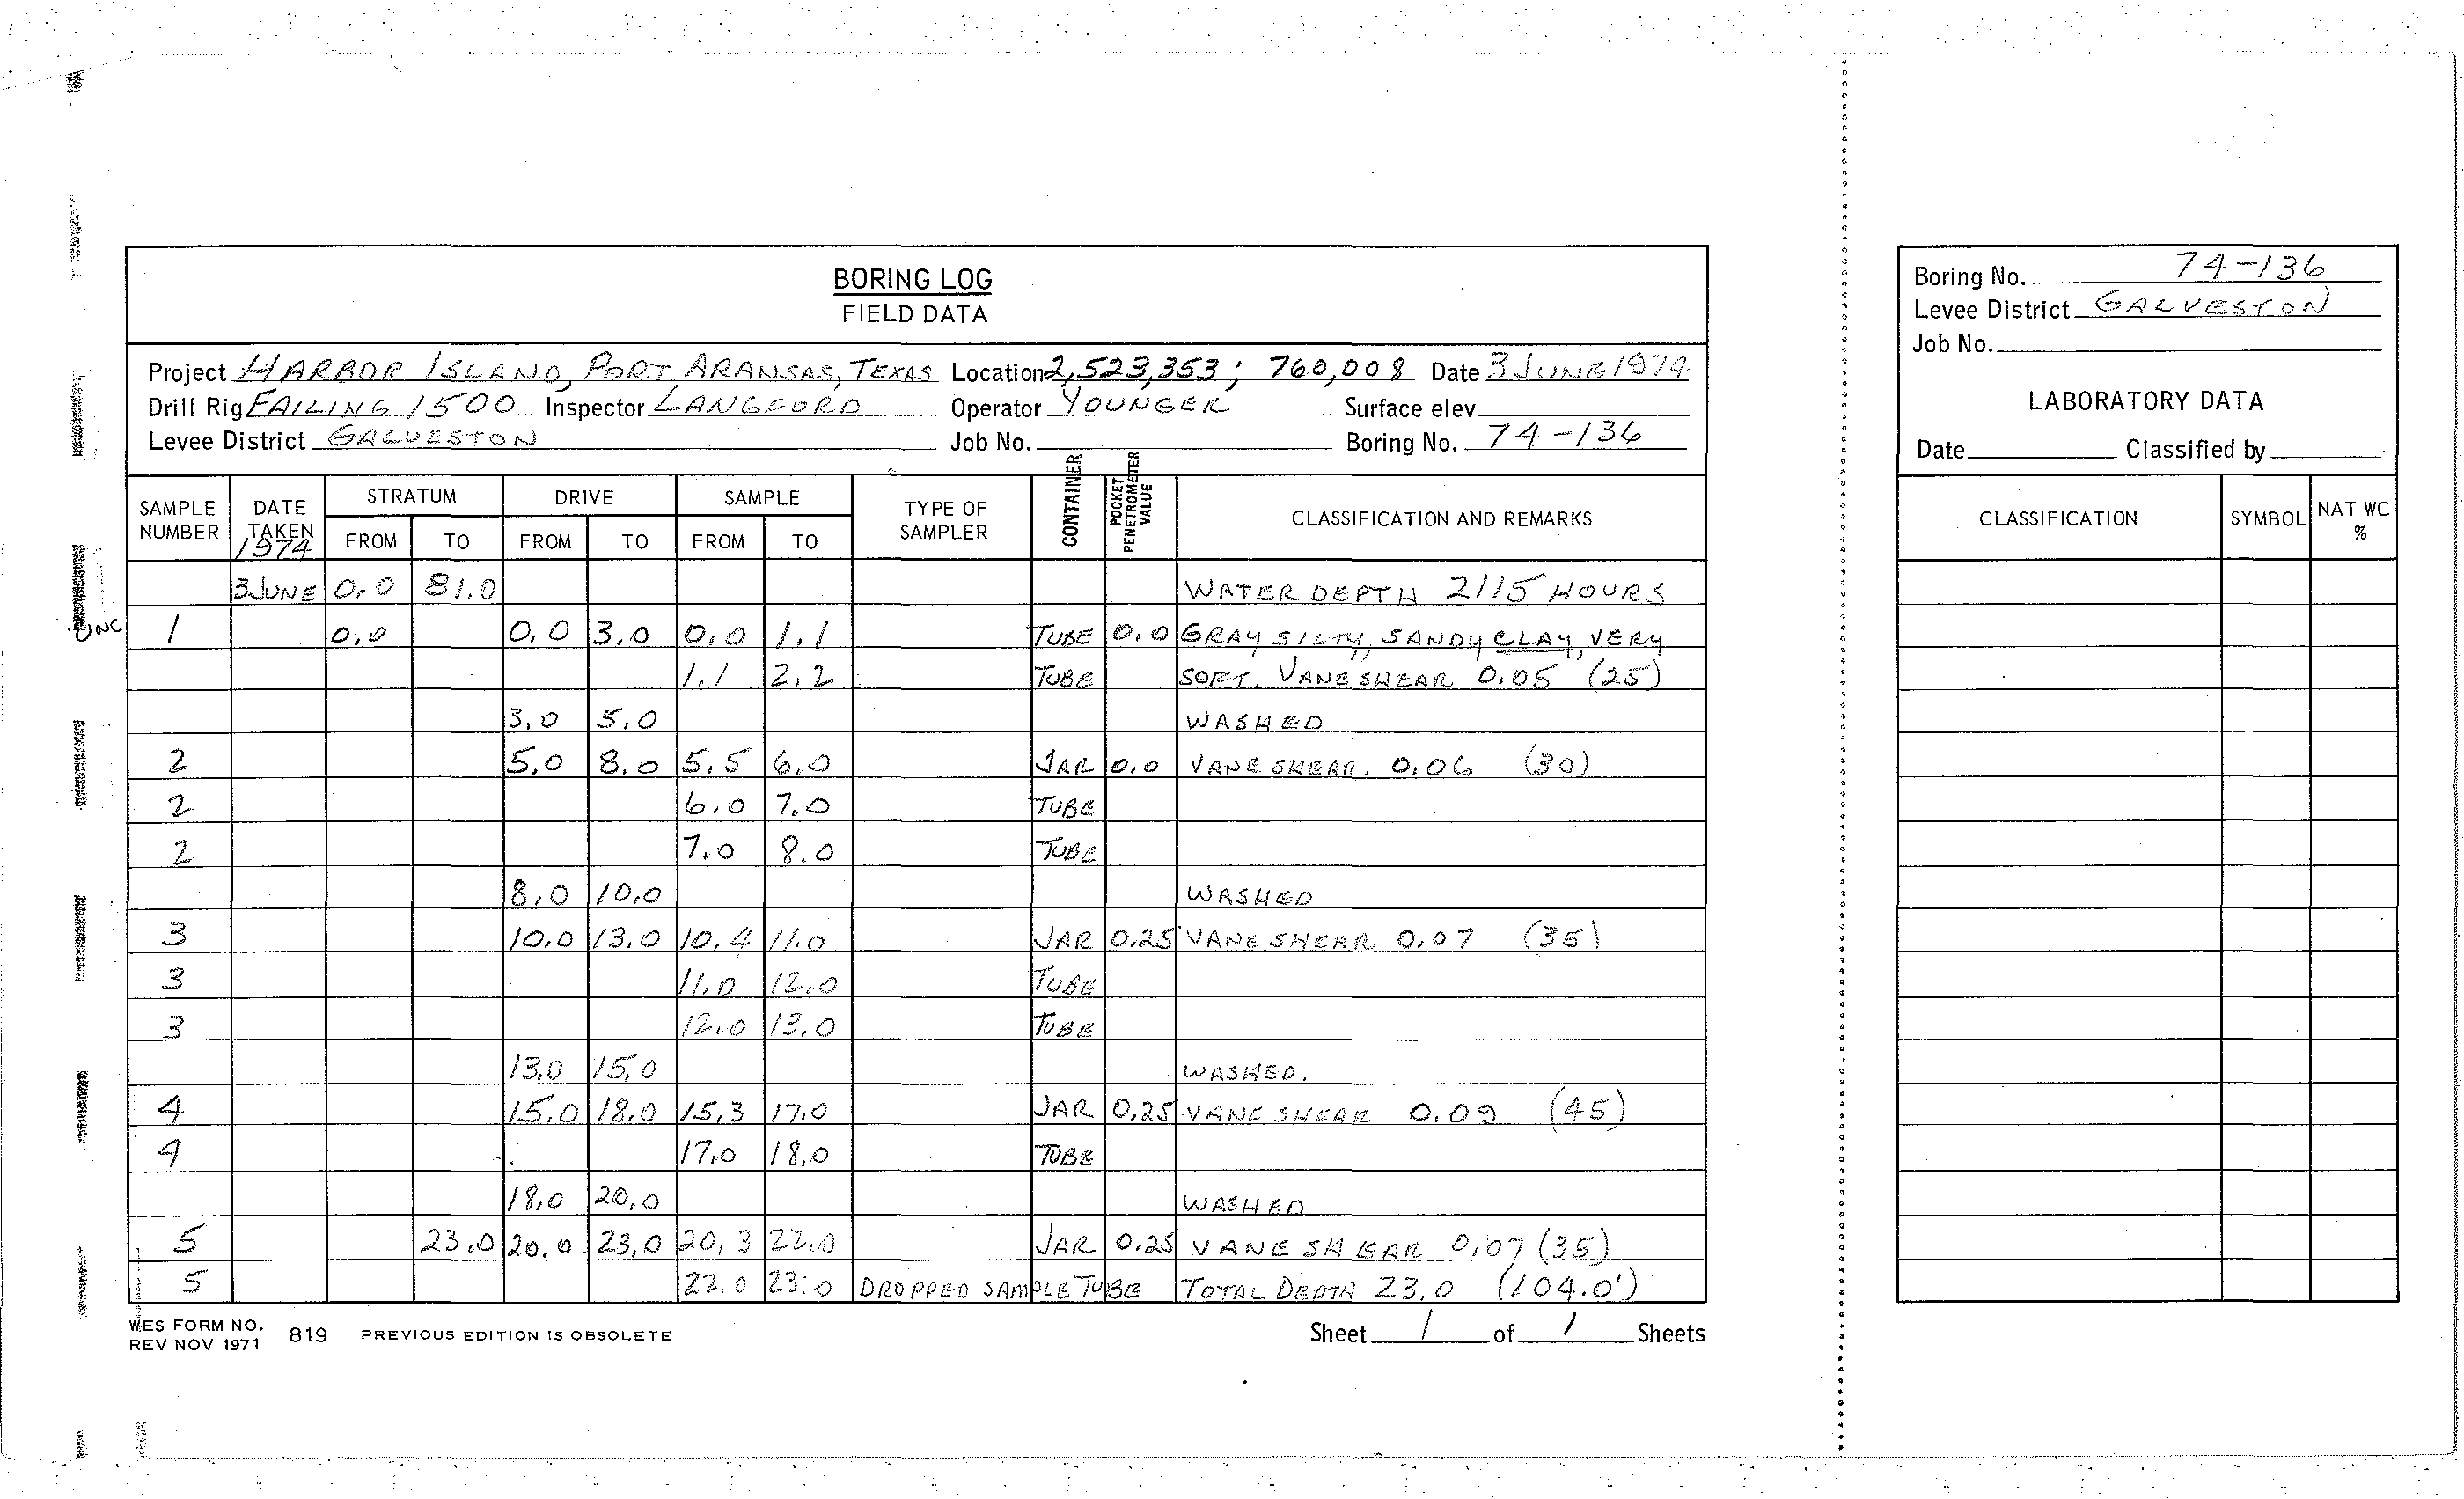 BORING LOG
FIELD DATA
Project HARBOR ISLAND, PORT ARANSAS, TEXAS Location 2,523,353; 760,008 Date 3 JUNE 1974
Drill Rig FAILING 1500 Inspector LANGFORD Operator YOUNGER Surface elev.
Levee District GALVESTON Job No. Boring No. 74-136
SAMPLE NUMBER DATE TAKEN 1974 STRATUM FROM TO DRIVE FROM TO SAMPLE FROM TO TYPE OF SAMPLER CONTAINER POCKET PENETROMETER VALUE CLASSIFICATION AND REMARKS
3 JUNE 0.0 81.0 WATER DEPTH 2115 HOURS
UNC 1 0.0 0.0 3.0 0.0 1.1 TUBE 0.0 GRAY SILTY, SANDY CLAY, VERY
1.1 2.2 TUBE SOFT. VANE SHEAR 0.05 (25)
3.0 5.0 WASHED
2 5.0 8.0 5.5 6.0 JAR 0.0 VANE SHEAR. 0.06 (30)
2 6.0 7.0 TUBE
2 7.0 8.0 TUBE
8.0 10.0 WASHED
3 10.0 13.0 10.4 11.0 JAR 0.25 VANE SHEAR 0.07 (35)
3 11.0 12.0 TUBE
3 12.0 13.0 TUBE
13.0 15.0 WASHED.
4 15.0 18.0 15.3 17.0 JAR 0.25 VANE SHEAR 0.09 (45)
4 17.0 18.0 TUBE
18.0 20.0 WASHED
5 23.0 20.0 23.0 20.3 22.0 JAR 0.25 VANE SHEAR 0.07 (35)
5 22.0 23.0 DROPPED SAMPLE TUBE TOTAL DEPTH 23.0 (104.0')
WES FORM NO. 819 PREVIOUS EDITION IS OBSOLETE
REV NOV 1971
Sheet 1 of 1 Sheets
Boring No. 74-136
Levee District GALVESTON
Job No.
LABORATORY DATA
Date Classified by
CLASSIFICATION SYMBOL NAT WC %